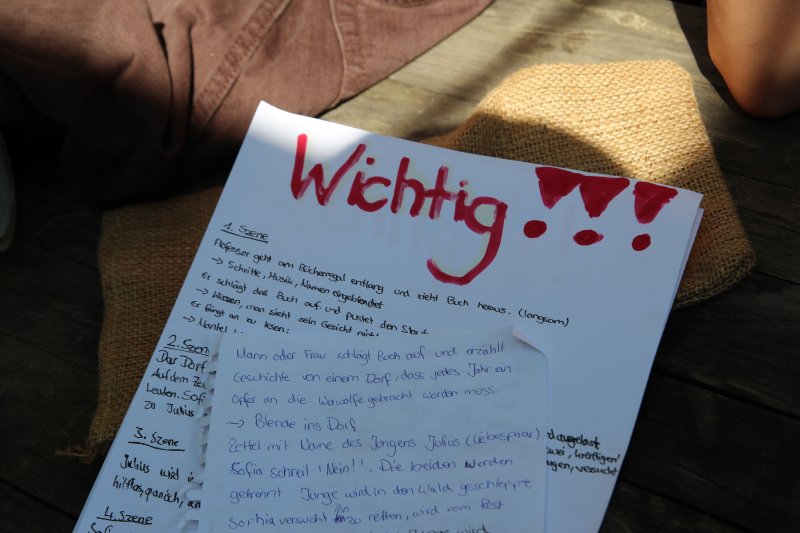 Wichtig!!!
1. Szene
Professor geht am Bücherregal entlang und zieht Buch heraus. (langsam)
→ Schritte, Musik, Namen eingeblendet
Er schlägt das Buch auf und pustet den Staub
→ man sieht sein Gesicht nicht
Er fängt an zu lesen:
→ Mantel
2. Szene
Das Dorf
Auf dem
Leuten. Sofi
zu Julius
ausgelast
zwei, kräftigen
versucht
3. Szene
Julius wird i
hilflos, panisch, an
4. Szene
Sofi
Mann oder Frau schlägt Buch auf und erzählt
Geschichte von einem Dorf, dass jedes Jahr ein
Opfer an die Werwölfe gebracht werden muss.
→ Blende ins Dorf
Zettel mit Name des Jungens Julius (Liebespaar)
Sofia schreit 'Nein!'. Die beiden werden
getrennt. Junge wird in den Wald geschleppt,
Sophia versucht ihn zu retten, wird vom Rest
Junge wird